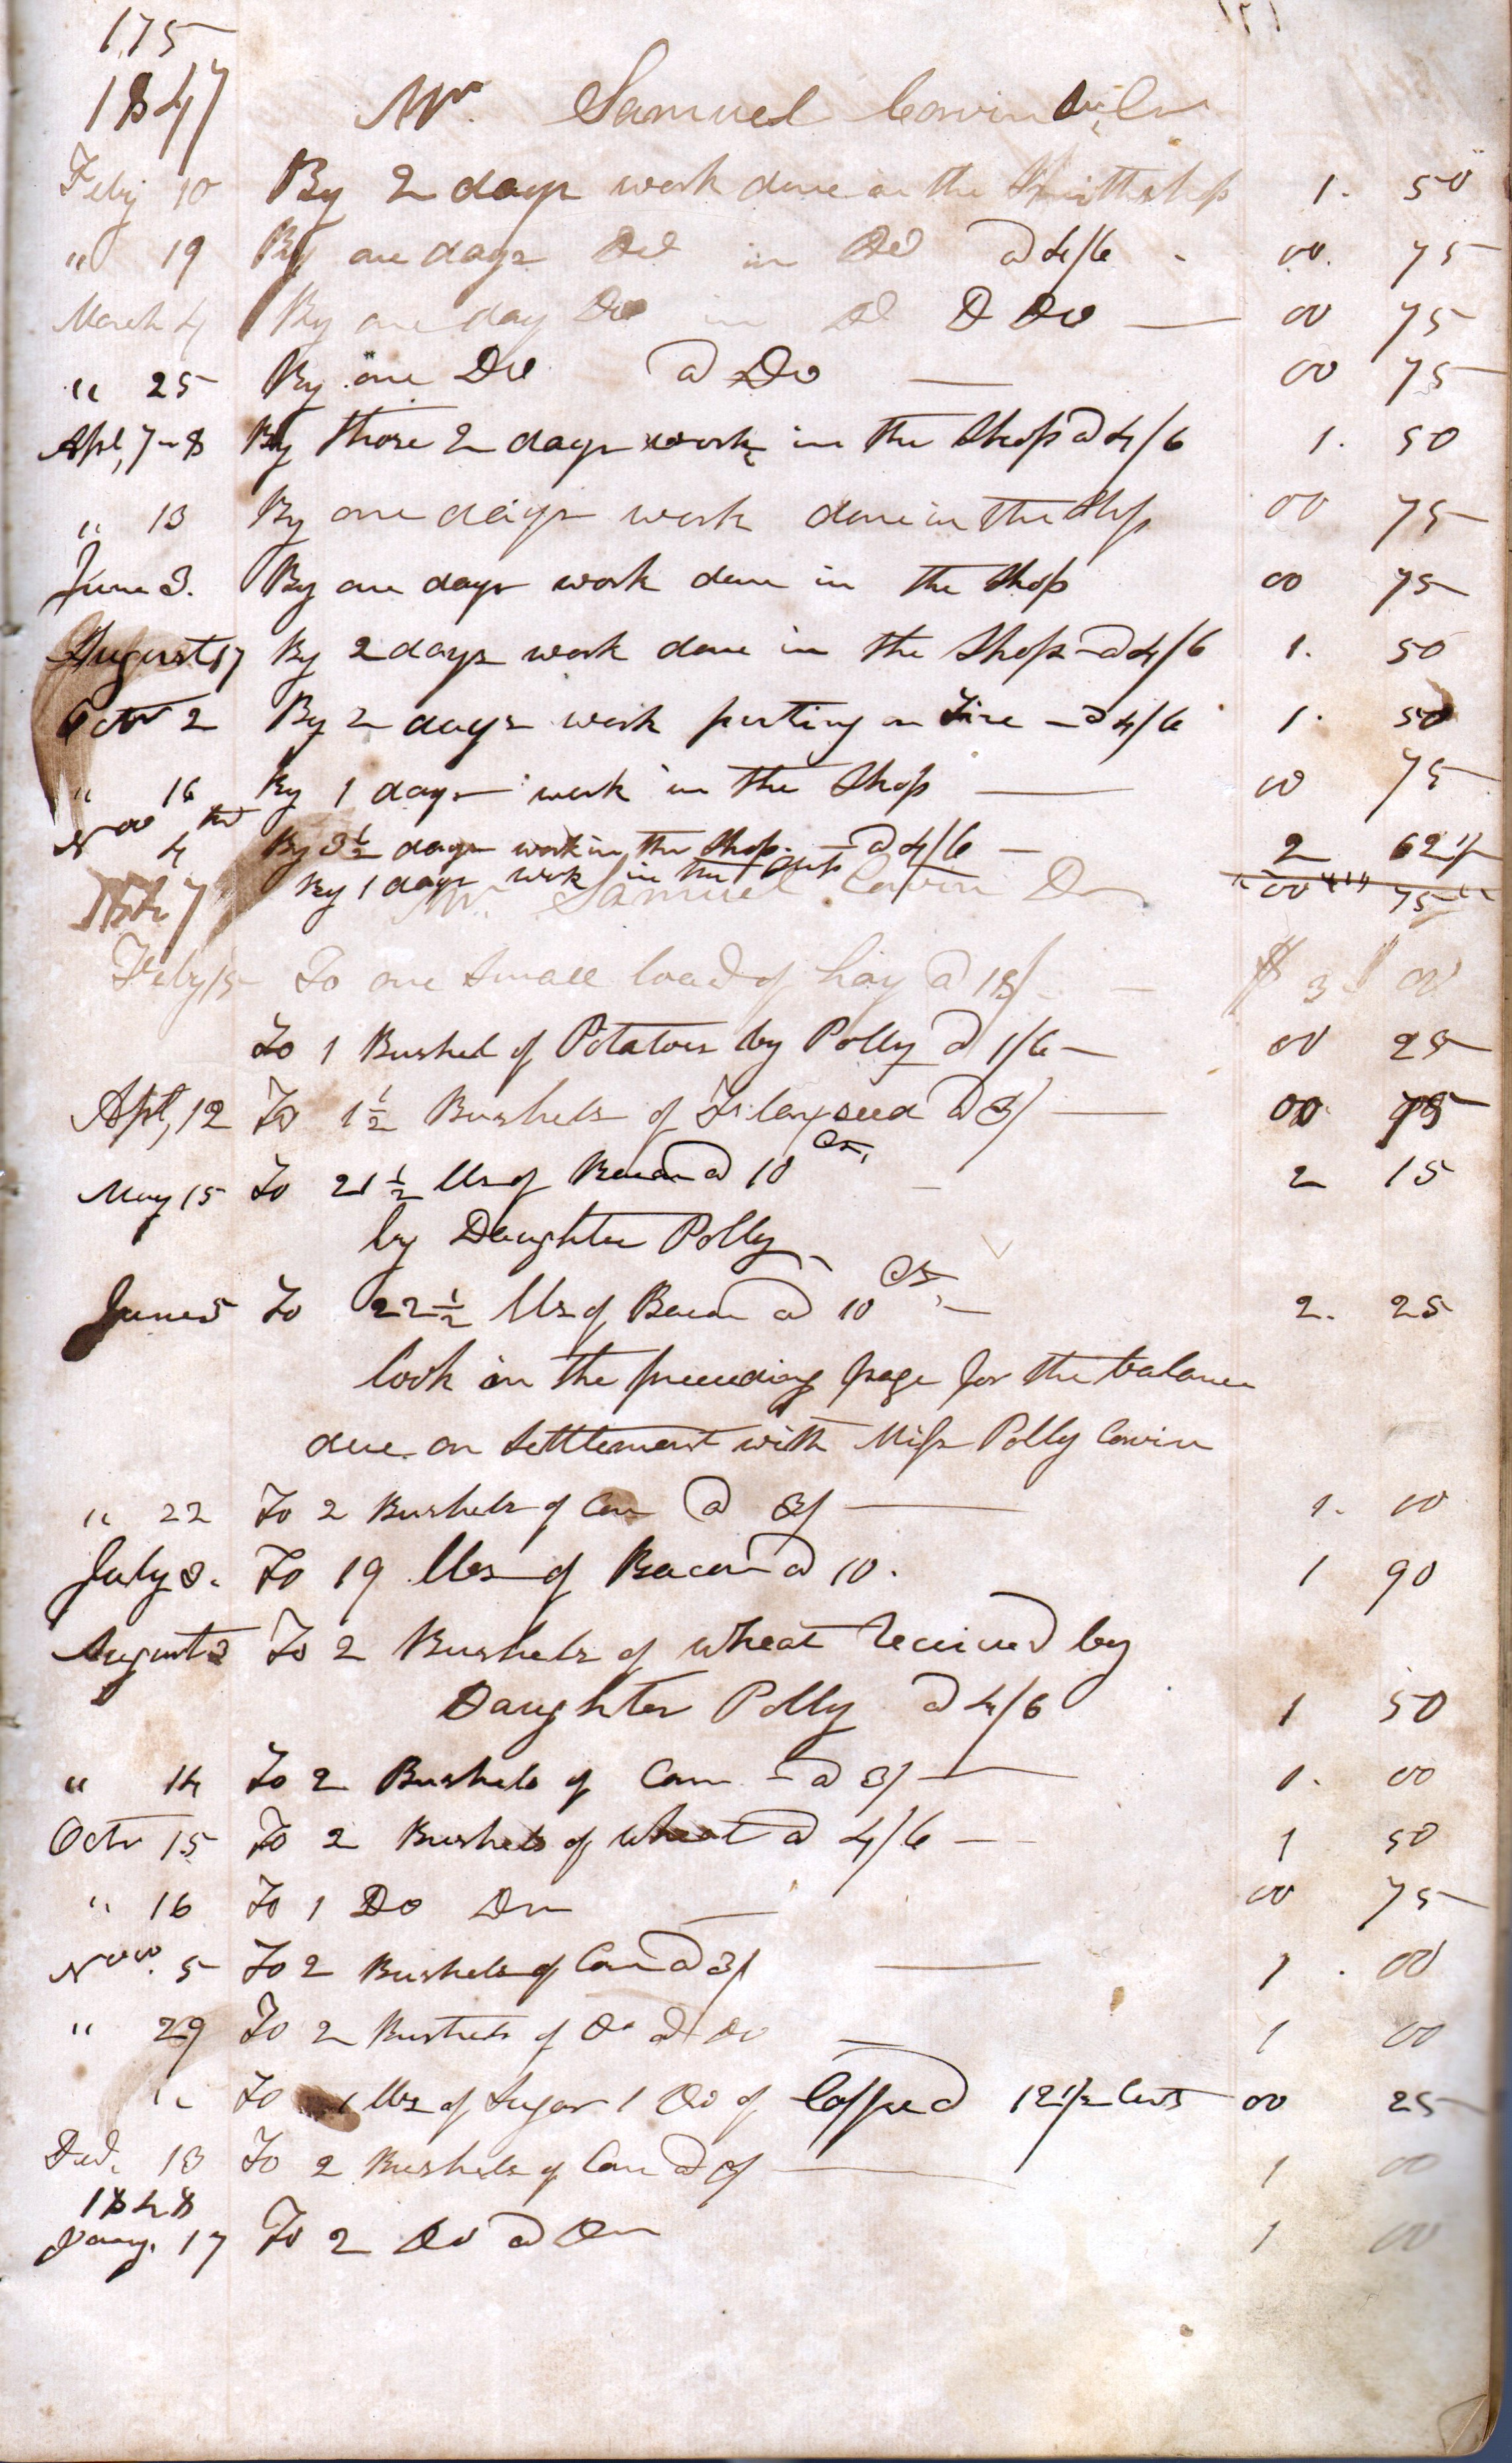 175
1847 Mr. Samuel Corwin Cr
Feby 10 By 2 days work done in the Smithshop 1. 50
" 19 By one days Do in Do @ 4/6 - 00. 75
March 4 By one day Do in Do @ Do — 00 75
" 25 By one Do @ Do — 00 75
Apl, 7 - 8 By those 2 days work in the Shop @ 4/6 1. 50
" 13 By one days work done in the Shop 00 75
June 3. By one days work done in the Shop 00 75
August 17 By 2 days work done in the Shop - @ 4/6 1. 50
Octr 2 By 2 days work putting on Tire - @ 4/6 1. 50
" 16 By 1 days work in the Shop — 00 75
Nov 4 By 3½ days work in the Shop. - @ 4/6 — 2 62½
By 1 days work in the Shop " 00 " 75 "
1847 Mr. Samuel Corwin Dr
Feby 15 To one Small load of hay @ 18/ - — $ 3 00
To 1 Bushel of Potatoes by Polly @ 1/6 — 00 25
Apl, 12 To 1½ Bushels of flaxseed @ 3/ — 00 75
May 15 To 21½ lbs of Bacon @ 10 Cts, — 2 15
by Daughter Polly
June 5 To 22½ lbs of Bacon @ 10 Cts, — 2. 25
look in the preceeding page for the balance
due on Settlement with Miss Polly Corwin
" 22 To 2 Bushels of Corn @ 3/ — 1. 00
July 3. To 19 lbs of Bacon @ 10. 1 90
August 3 To 2 Bushels of wheat Received by
Daughter Polly @ 4/6 1 50
" 14 To 2 Bushels of Corn - @ 3/ — 1. 00
Octr 15 To 2 Bushels of wheat @ 4/6 — 1 50
" 16 To 1 Do Do — 00 75
Nov. 5 To 2 Bushels of Corn @ 3/ — 1. 00
" 29 To 2 Bushels of Do @ Do — 1 00
" To 1 lbs of Sugar 1 Do of Coffee @ 12½ Cents 00 25
Dec. 13 To 2 Bushels of Corn @ 3/ — 1 00
1848
Jany. 17 To 2 Do @ Do 1 00